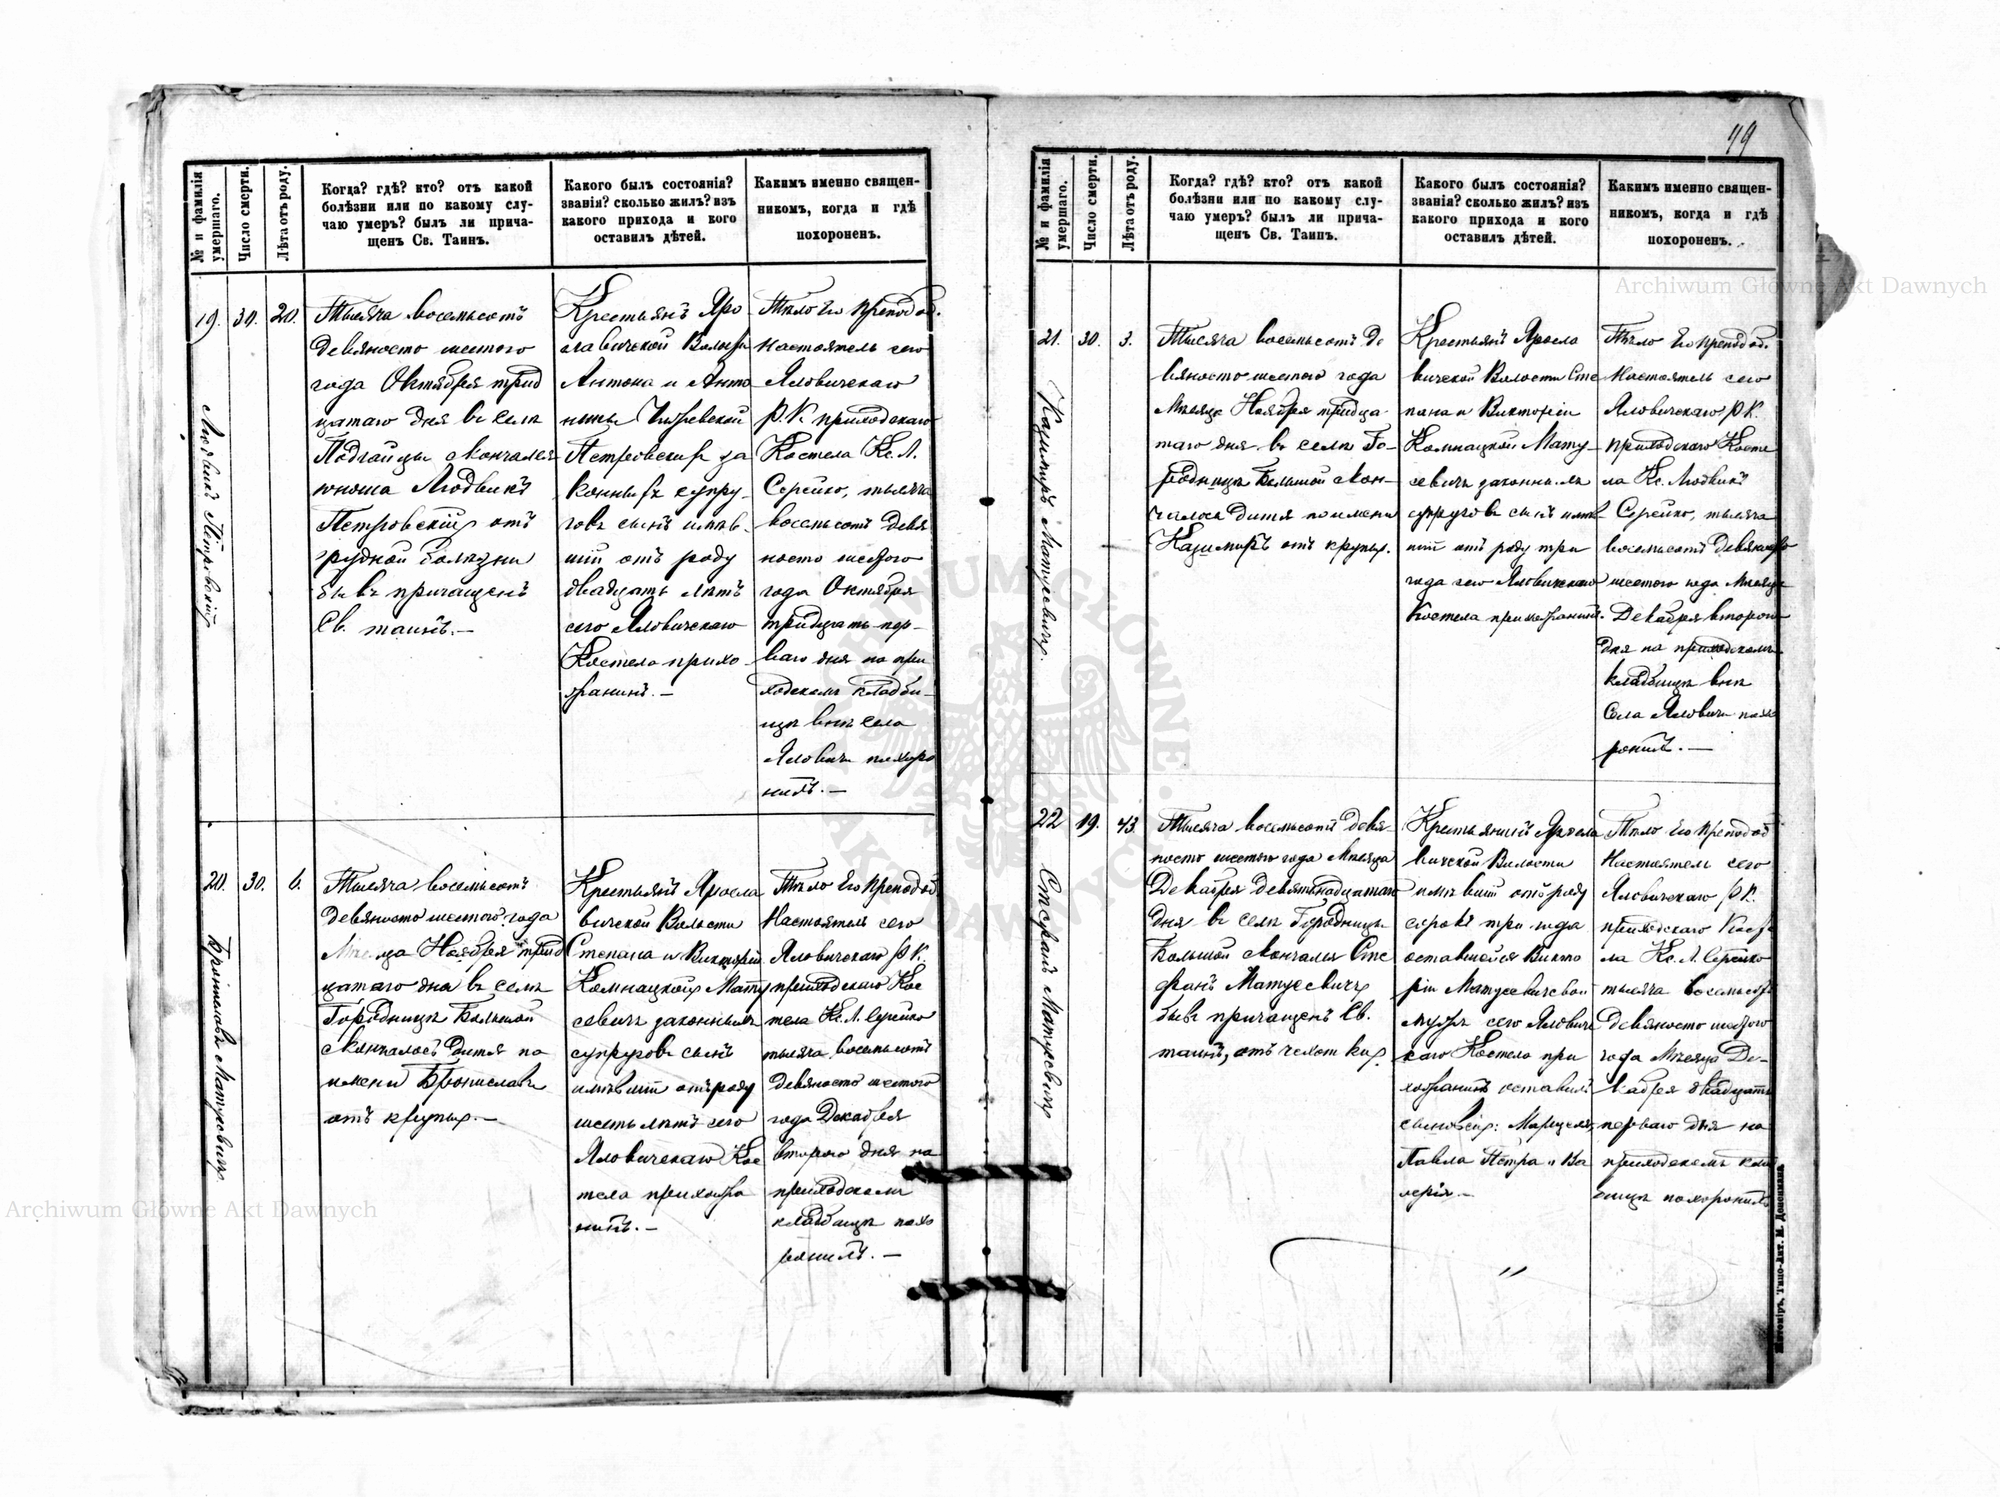 99
№ и фамилія умершаго.
Число смерти.
Лѣта отъ роду.
Когда? гдѣ? кто? отъ какой
болѣзни или по какому слу-
чаю умеръ? былъ ли прича-
щенъ Св. Таинъ.
Какого былъ состоянія?
званія? сколько жилъ? изъ
какого прихода и кого
оставилъ дѣтей.
Какимъ именно священ-
никомъ, когда и гдѣ
похороненъ.
19.
Людвикъ Петровскій
30.
20.
Тысяча восемьсотъ
девяносто шестого
года Октября трид
цатаго дня въ селѣ
Подгайцы скончался
юноша Людвикъ
Петровскій отъ
грудной болѣзни
бывъ причащенъ
Св. таинъ.—
Крестьянъ Яро
славичской Волости
Антона и Анто
нины
Петровскихъ за
конныхъ супру
говъ сынъ имѣв
шій отъ роду
двадцать лѣтъ
сего Яловичскаго
Костела прихо
жанинъ.—
Тѣло Его Преподоб.
Настоятель сего
Яловичскаго
Р. К. приходскаго
Костела Кс. Л.
Серейко, тысяча
восемьсотъ девя
носто шестого
года Октября
тридцать пер-
ваго дня на при
ходскомъ кладби-
щѣ внѣ села
Яловичъ похоро
нилъ.—
20.
Брониславъ Матусевичъ
30.
6.
Тысяча восемьсотъ
девяносто шестого года
Мѣсяца Ноября трид
цатаго дня въ селѣ
Городницѣ Большой
скончалось дитя по
имени Брониславъ
отъ крупъ.—
Крестьянъ Яросла
вичской Волости
Степана и Викторіи
Комнацкой Мату
севичъ законныхъ
супруговъ сынъ
имѣвшій отъ роду
шесть лѣтъ сего
Яловичскаго Кос
тела прихожа
нинъ.—
Тѣло Его Преподоб.
Настоятель сего
Яловичскаго Р. К.
приходскаго Кос
тела Кс. Л. Серейко
тысяча восемьсотъ
девяносто шестого
года Декабря
второго дня на
приходскомъ
кладбищѣ похо
ронилъ.—
№ и фамилія умершаго.
Число смерти.
Лѣта отъ роду.
Когда? гдѣ? кто? отъ какой
болѣзни или по какому слу-
чаю умеръ? былъ ли прича-
щенъ Св. Таинъ.
Какого былъ состоянія?
званія? сколько жилъ? изъ
какого прихода и кого
оставилъ дѣтей.
Какимъ именно священ-
никомъ, когда и гдѣ
похороненъ.
21.
Казимиръ Матусевичъ.
30.
3.
Тысяча восемьсотъ де
вяносто шестого года
Мѣсяца Ноября тридца-
таго дня въ селѣ Го-
родницѣ Большой скон-
чалось дитя по имени
Казимиръ отъ крупъ.
Крестьянъ Яросла
вичской Волости Сте
пана и Викторіи
Комнацкой Мату-
севичъ законныхъ
супруговъ сынъ имѣв
шій отъ роду три
года сего Яловичскаго
Костела прихожанинъ.
Тѣло Его Преподоб.
Настоятель сего
Яловичскаго Р. К.
приходскаго Косте
ла Кс. Людвикъ
Серейко, тысяча
восемьсотъ девяносто
шестого года Мѣсяца
Декабря второго
дня на приходскомъ
кладбищѣ внѣ
Села Яловичъ похо
ронилъ.—
22
Стефанъ Матусевичъ
19.
43
Тысяча восемьсотъ девя-
носто шестого года Мѣсяца
Декабря девятнадцатаго
дня въ селѣ Городницѣ
Большой скончался Сте
фанъ Матусевичъ
бывъ причащенъ Св.
таинъ, отъ
Крестьянинъ Яросла
вичской Волости
имѣвшій отъ роду
сорокъ три года
оставшейся Викто
ріи Матусевичевой
мужъ сего Яловичс
каго Костела при
хожанинъ оставилъ
сыновей: Марцела,
Павла Петра и Ва
лерія.—
Тѣло Его Преподоб
Настоятель сего
Яловичскаго Р. К.
приходскаго Косте
ла Кс. Л. Серейко
тысяча восемьсотъ
девяносто шестого
года Мѣсяца Де-
кабря двадцать
перваго дня на
приходскомъ клад
бищѣ похоронилъ
Житоміръ, Типо-Лит. М. Дененмана.
Archiwum Główne Akt Dawnych
Archiwum Główne Akt Dawnych
ARCHIWUM GŁÓWNE AKT DAWNYCH